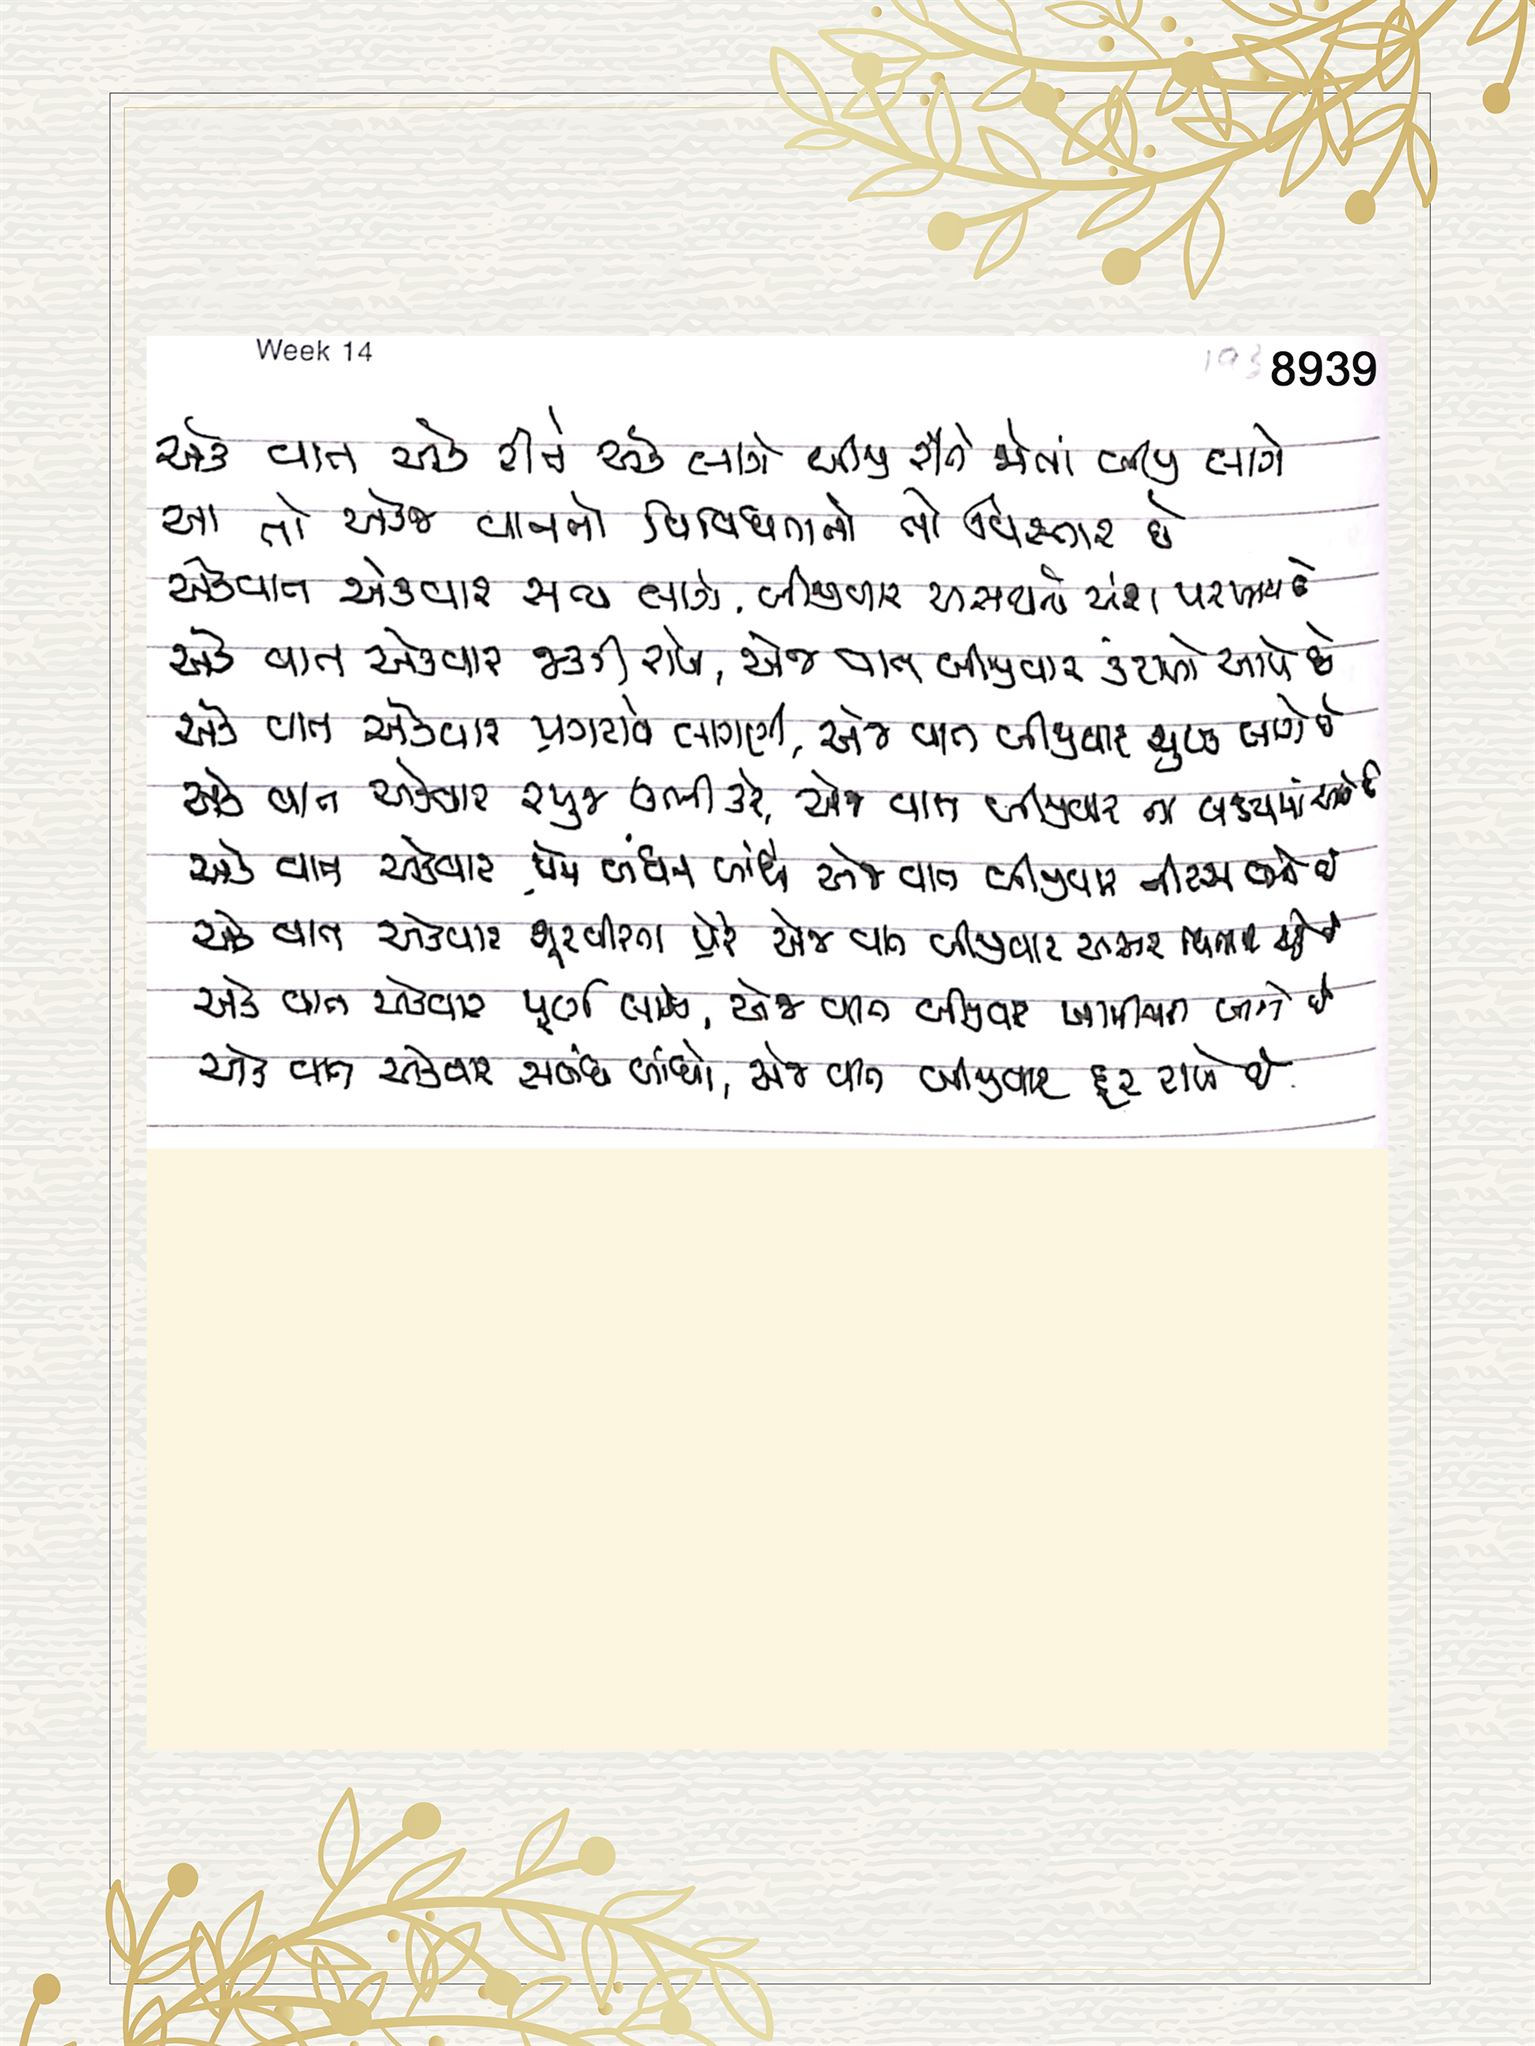 Week 14
8939
એક વાત એક રીતે એક લાગે બીજી રીતે જોતાં બીજી લાગે
આ તો એકજ વાતનો વિવિધતાનો તો વિસ્તાર છે
એકવાત એકવાર સત્ય લાગે, બીજીવાર અસત્યનો અંશ પરખાય છે
એક વાત એકવાર જકડી રાખે, એજ વાત બીજીવાર કંટાળો આપે છે
એક વાત એકવાર પ્રગટાવે લાગણી, એજ વાત બીજીવાર શુષ્ક લાગે છે
એક વાત એકવાર રમુજ ઊભી કરે, એજ વાત બીજીવાર ના
એક વાત એકવાર પ્રેમ બંધન બાંધે એજ વાત બીજીવાર નીરસ બને છે
એક વાત એકવાર શૂરવીરતા પ્રેરે એજ વાત બીજીવાર અસર
એક વાત એકવાર પૂર્ણ લાગે, એજ વાત બીજીવાર બને છે
એક વાત એકવાર સબંધ બાંધે, એજ વાત બીજીવાર દૂર રાખે છે.